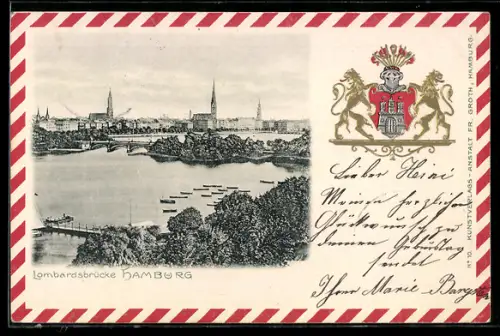 Lombardsbrücke HAMBURG
Lieber Heini
Meinen herzlichen
Glückwunsch zu
Deinem Geburtstag
sendet
Ihre Marie
No 10. KUNSTVERLAGS-ANSTALT FR. GROTH, HAMBURG.